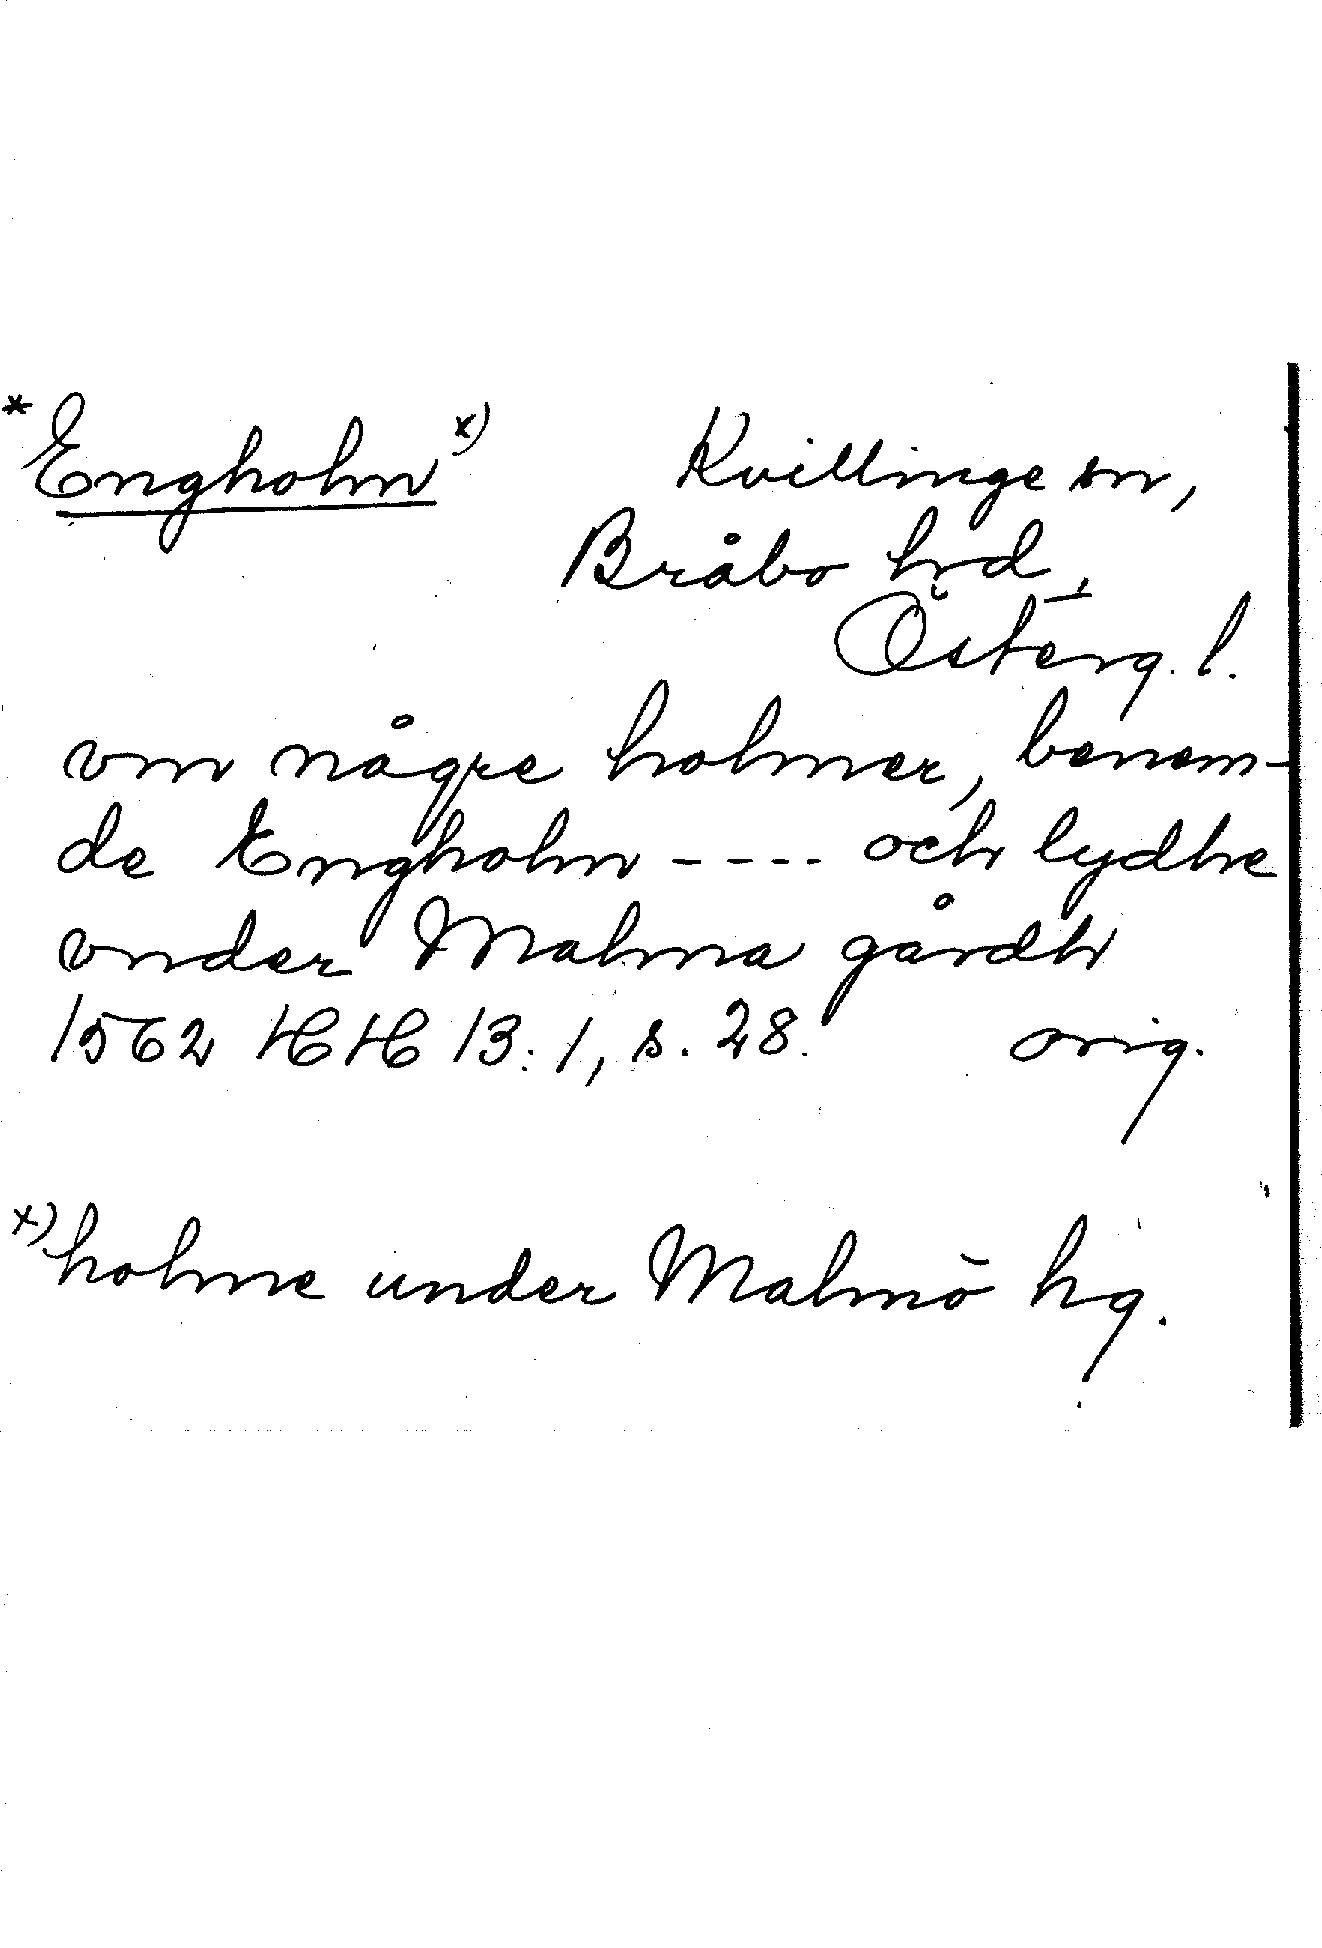 * Engholm x) Kvillinge sn,
Bråbo hrd,
Österg. l.
vm någre holmer, benem-
de Engholm ---- och lydhe
vnder Malma gårdh
1562 HH 13:1, s. 28. orig.
x) holme under Malmö hg.